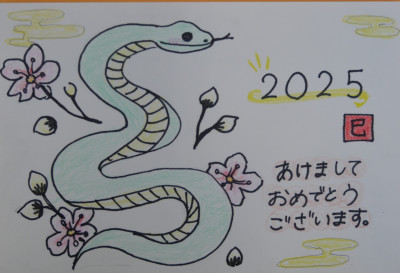 2025
巳
あけまして
おめでとう
ございます。